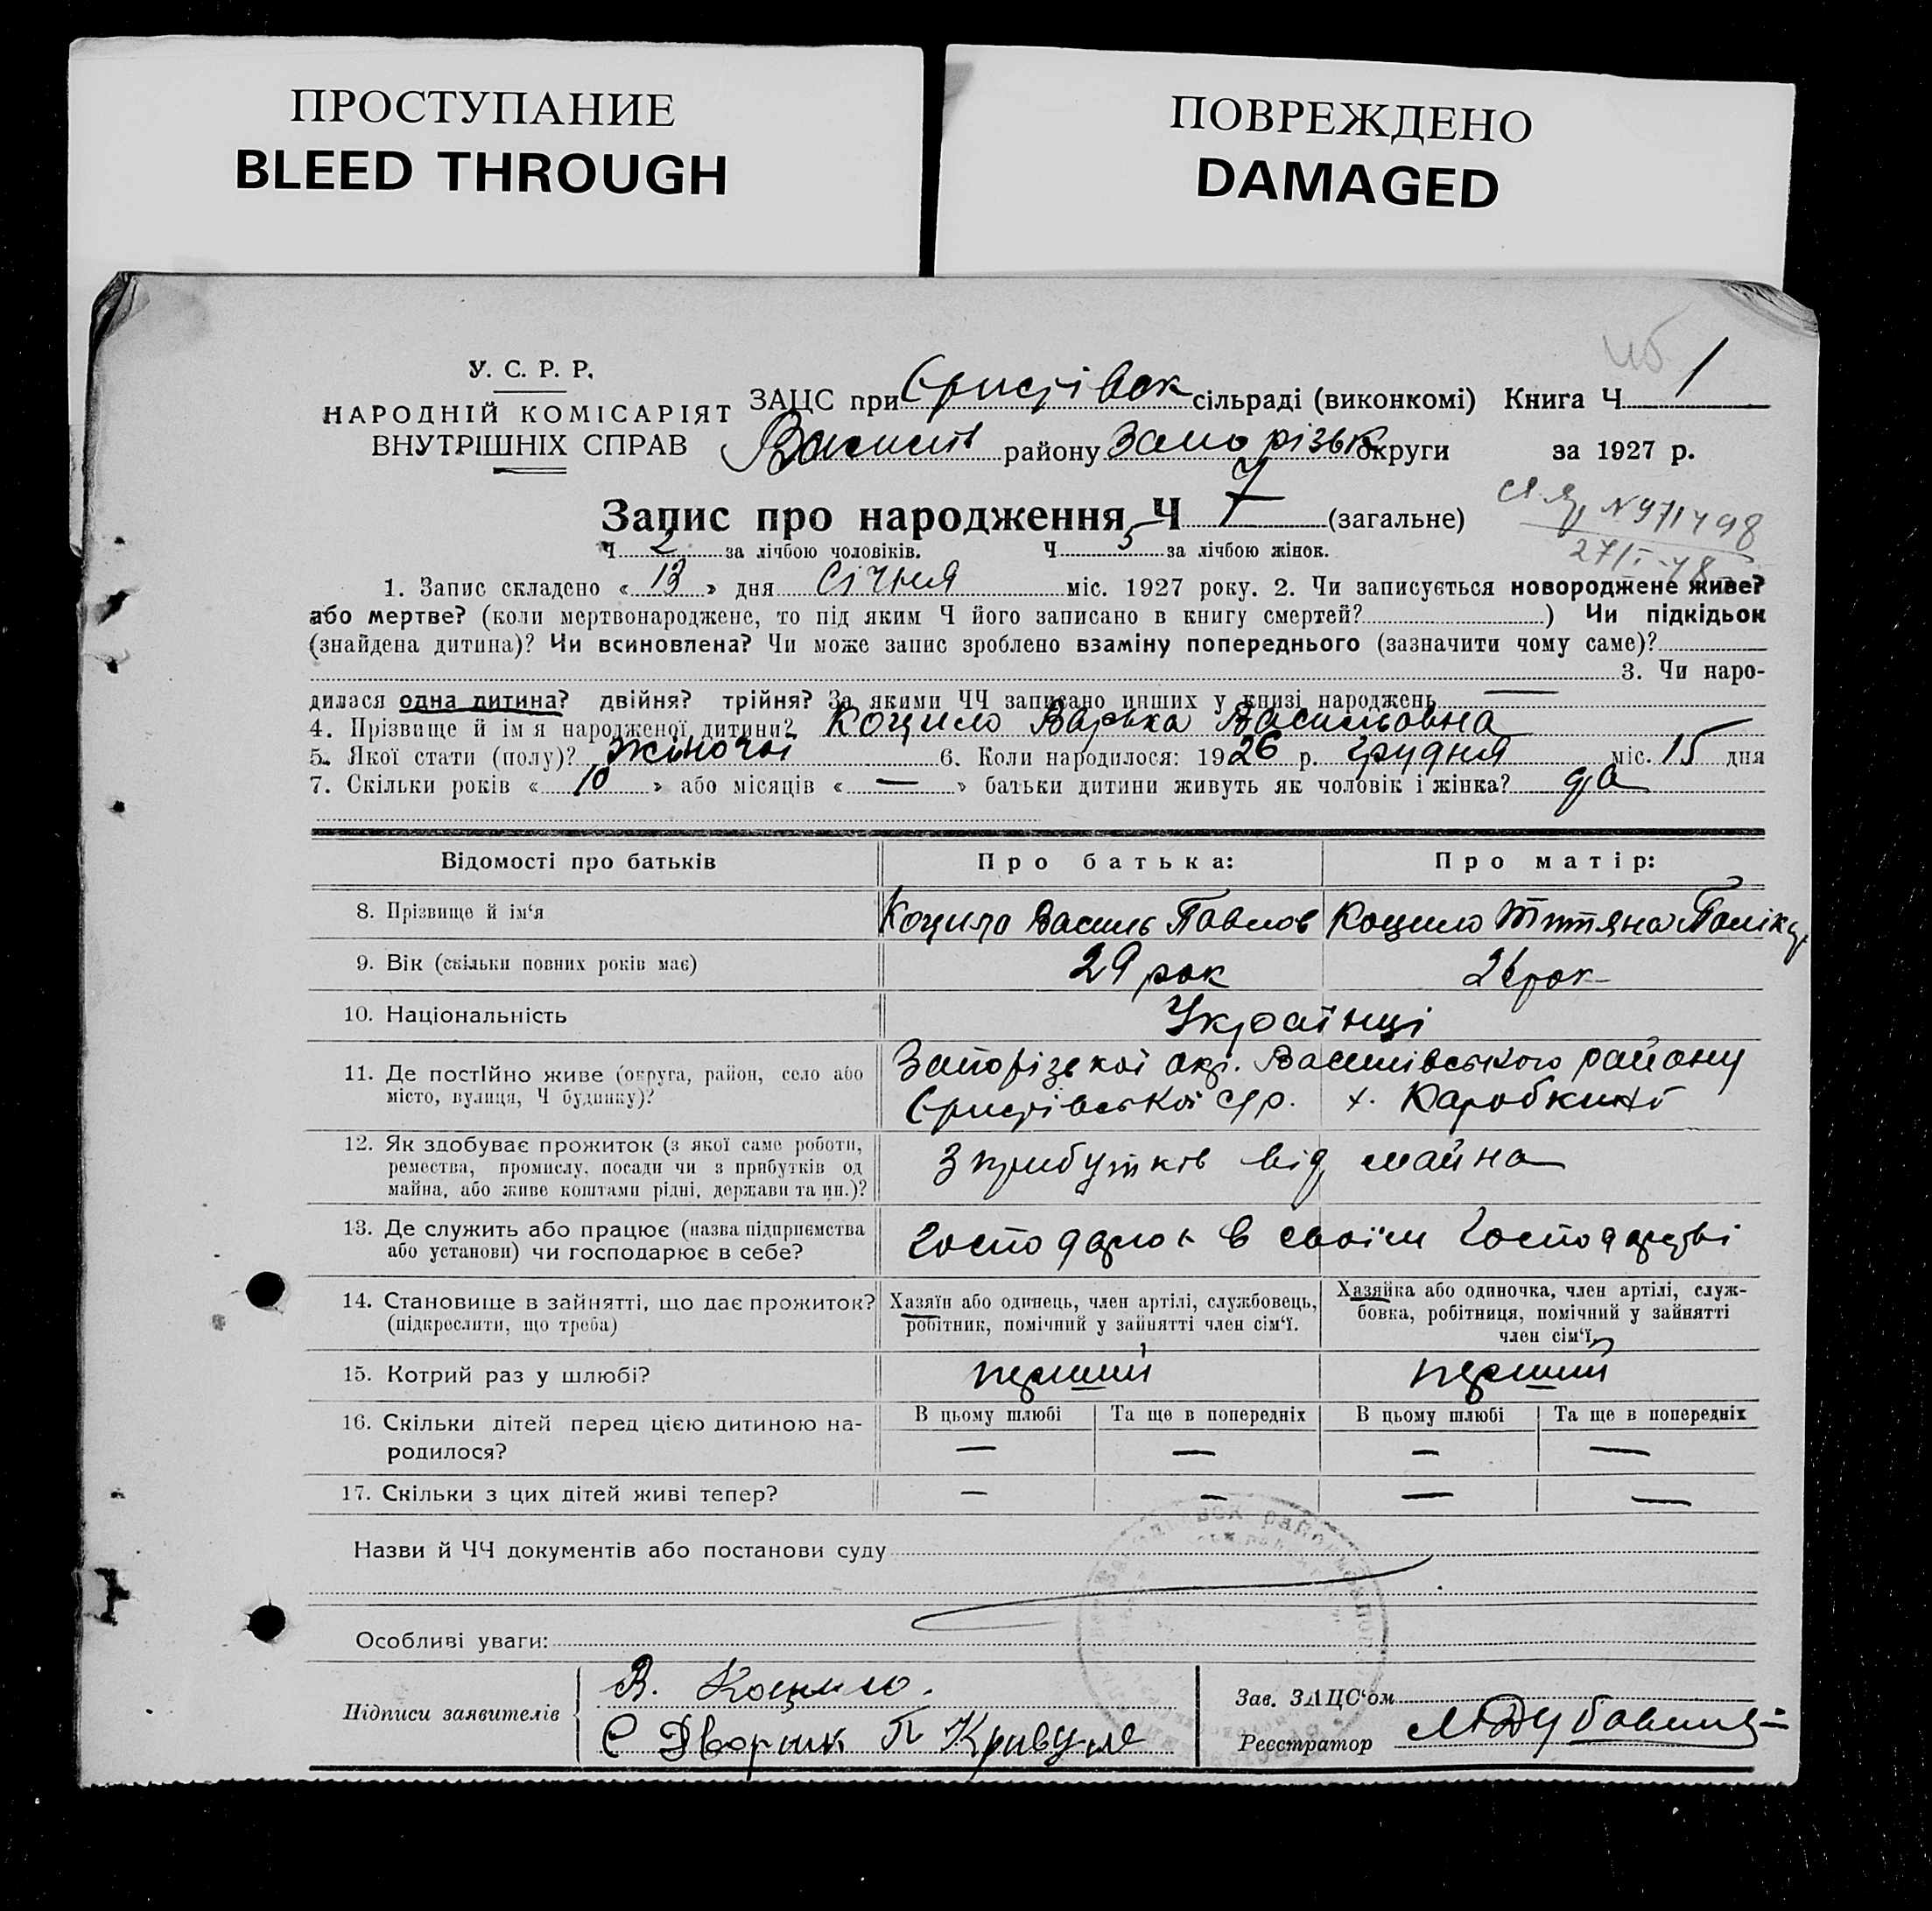 ПРОСТУПАНИЕ
BLEED THROUGH
ПОВРЕЖДЕНО
DAMAGED
1
У. С. Р. Р.
НАРОДНІЙ КОМІСАРІЯТ
ВНУТРІШНІХ СПРАВ
ЗАЦС при сільраді (виконкомі) Книга Ч
Василів району Запорізьк округи за 1927 р.
Запис про народження Ч 7 (загальне)
N 971498
27/I-48
Ч 2 за лічбою чоловіків. Ч 5 за лічбою жінок.
1. Запис складено « 13 » дня Січня міс. 1927 року. 2. Чи записується новороджене живе?
або мертве? (коли мертвонароджене, то під яким Ч його записано в книгу смертей? ) Чи підкідьок
(знайдена дитина)? Чи всиновлена? Чи може запис зроблено взаміну попереднього (зазначити чому саме)?
3. Чи наро-
дилася одна дитина? двійня? трійня? За якими ЧЧ записано инших у книзі народжень —
4. Прізвище й ім'я народженої дитини? Коцило Варька Васильовна
5. Якої стати (полу)? жіночої 6. Коли народилося: 1926 р. грудня міс. 15 дня
7. Скільки років « 10 » або місяців « — » батьки дитини живуть як чоловік і жінка? да
Відомості про батьків Про батька: Про матір:
8. Прізвище й ім'я Коцило Василь Павлов Коцило Тптяна
9. Вік (скільки повних років має) 29 рок 26 рок
10. Національність Українці
11. Де постІйно живе (округа, район, село або
місто, вулиця, Ч будинку)?
Запорізскої окр. Василівського району
с/р. х. Каробкині
12. Як здобуває прожиток (з якої саме роботи,
ремества, промислу, посади чи з прибутків од
майна, або живе коштами рідні, держави та ин.)?
З прибутків від майна
13. Де служить або працює (назва підприємства
або установи) чи господарює в себе?
Господарює в своїм Господарстві
14. Становище в зайнятті, що дає прожиток?
(підкреслити, що треба)
Хазяїн або одинець, член артілі, службовець,
робітник, помічний у зайнятті член сім'ї.
Хазяйка або одиночка, член артілі, служ-
бовка, робітниця, помічний у зайнятті
член сім'ї.
15. Котрий раз у шлюбі? перший перший
16. Скільки дітей перед цією дитиною на-
родилося?
В цьому шлюбі Та ще в попередніх В цьому шлюбі Та ще в попередніх
— — — —
17. Скільки з цих дітей живі тепер? — — — —
Назви й ЧЧ документів або постанови суду
Особливі уваги:
Підписи заявителів
В. Коцило.
С Дворник П Кривуля
Зав. ЗАЦС'ом
Реєстратор